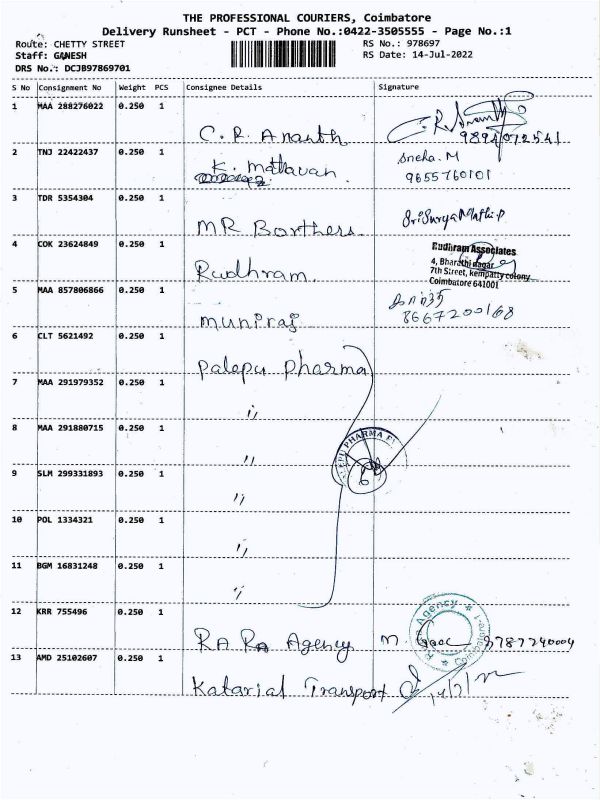 THE PROFESSIONAL COURIERS, Coimbatore
Delivery Runsheet - PCT - Phone No.:0422-3505555 - Page No.:1
Route: CHETTY STREET RS No.: 978697
Staff: GANESH RS Date: 14-Jul-2022
DRS No.: DCJB97869701
S No Consignment No Weight PCS Consignee Details Signature
1 MAA 288276022 0.250 1
C. R. Ananth C.R. 9894072541
2 TNJ 22422437 0.250 1 Sneha. M
K. Mathavan. 9655760101
3 TDR 5354304 0.250 1
MR Borthers.
4 COK 23624849 0.250 1 Rudhram Associates
4, Bharathi nagar
Rudhram. 7th Street, kempatty colony
Coimbatore 641001
5 MAA 857806866 0.250 1
muniraj 8667200168
6 CLT 5621492 0.250 1
Palepu Pharma
7 MAA 291979352 0.250 1
",
8 MAA 291880715 0.250 1 PHARMA
",
9 SLM 299331893 0.250 1
",
10 POL 1334321 0.250 1
",
11 BGM 16831248 0.250 1
",
12 KRR 755496 0.250 1 Ra Ra Agency * Coimbatore-1 *
RA RA Agency M. 9787240004
13 AMD 25102607 0.250 1
Katarial Transport 14/7/22